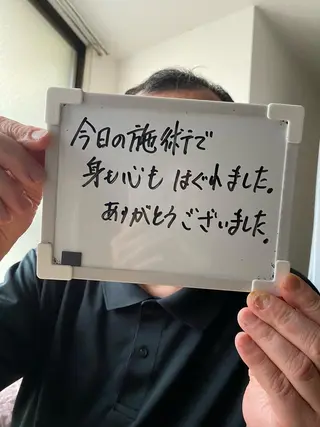 今日の施術で
身も心も ほぐれました。
ありがとうございました。